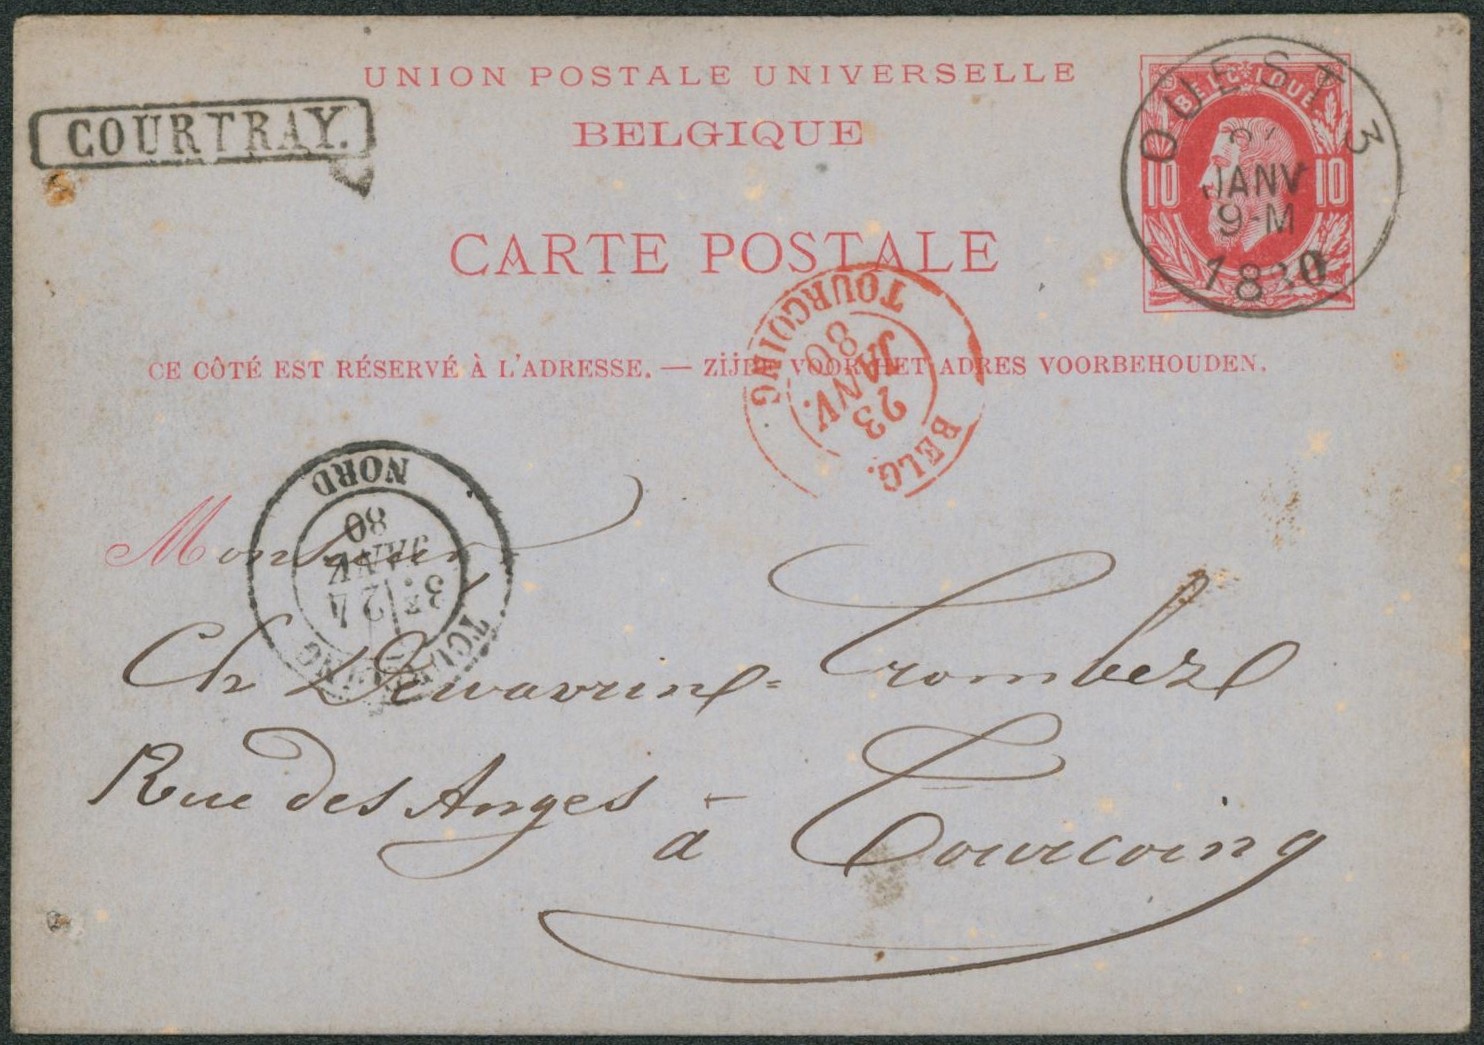 UNION POSTALE UNIVERSELLE
BELGIQUE
COURTRAY.
CARTE POSTALE
BELGIQUE
10 10
OUEST 3
JANV
9-M
1880
CE CÔTÉ EST RÉSERVÉ À L'ADRESSE. — ZIJDE VOOR HET ADRES VOORBEHOUDEN.
BELG. TOURCOING
23
JANV.
80
TOURCOING
3E 24
JANV
80
NORD
Monsieur
Ch Dewavrin-Crombez
Rue des Anges -
à Tourcoing